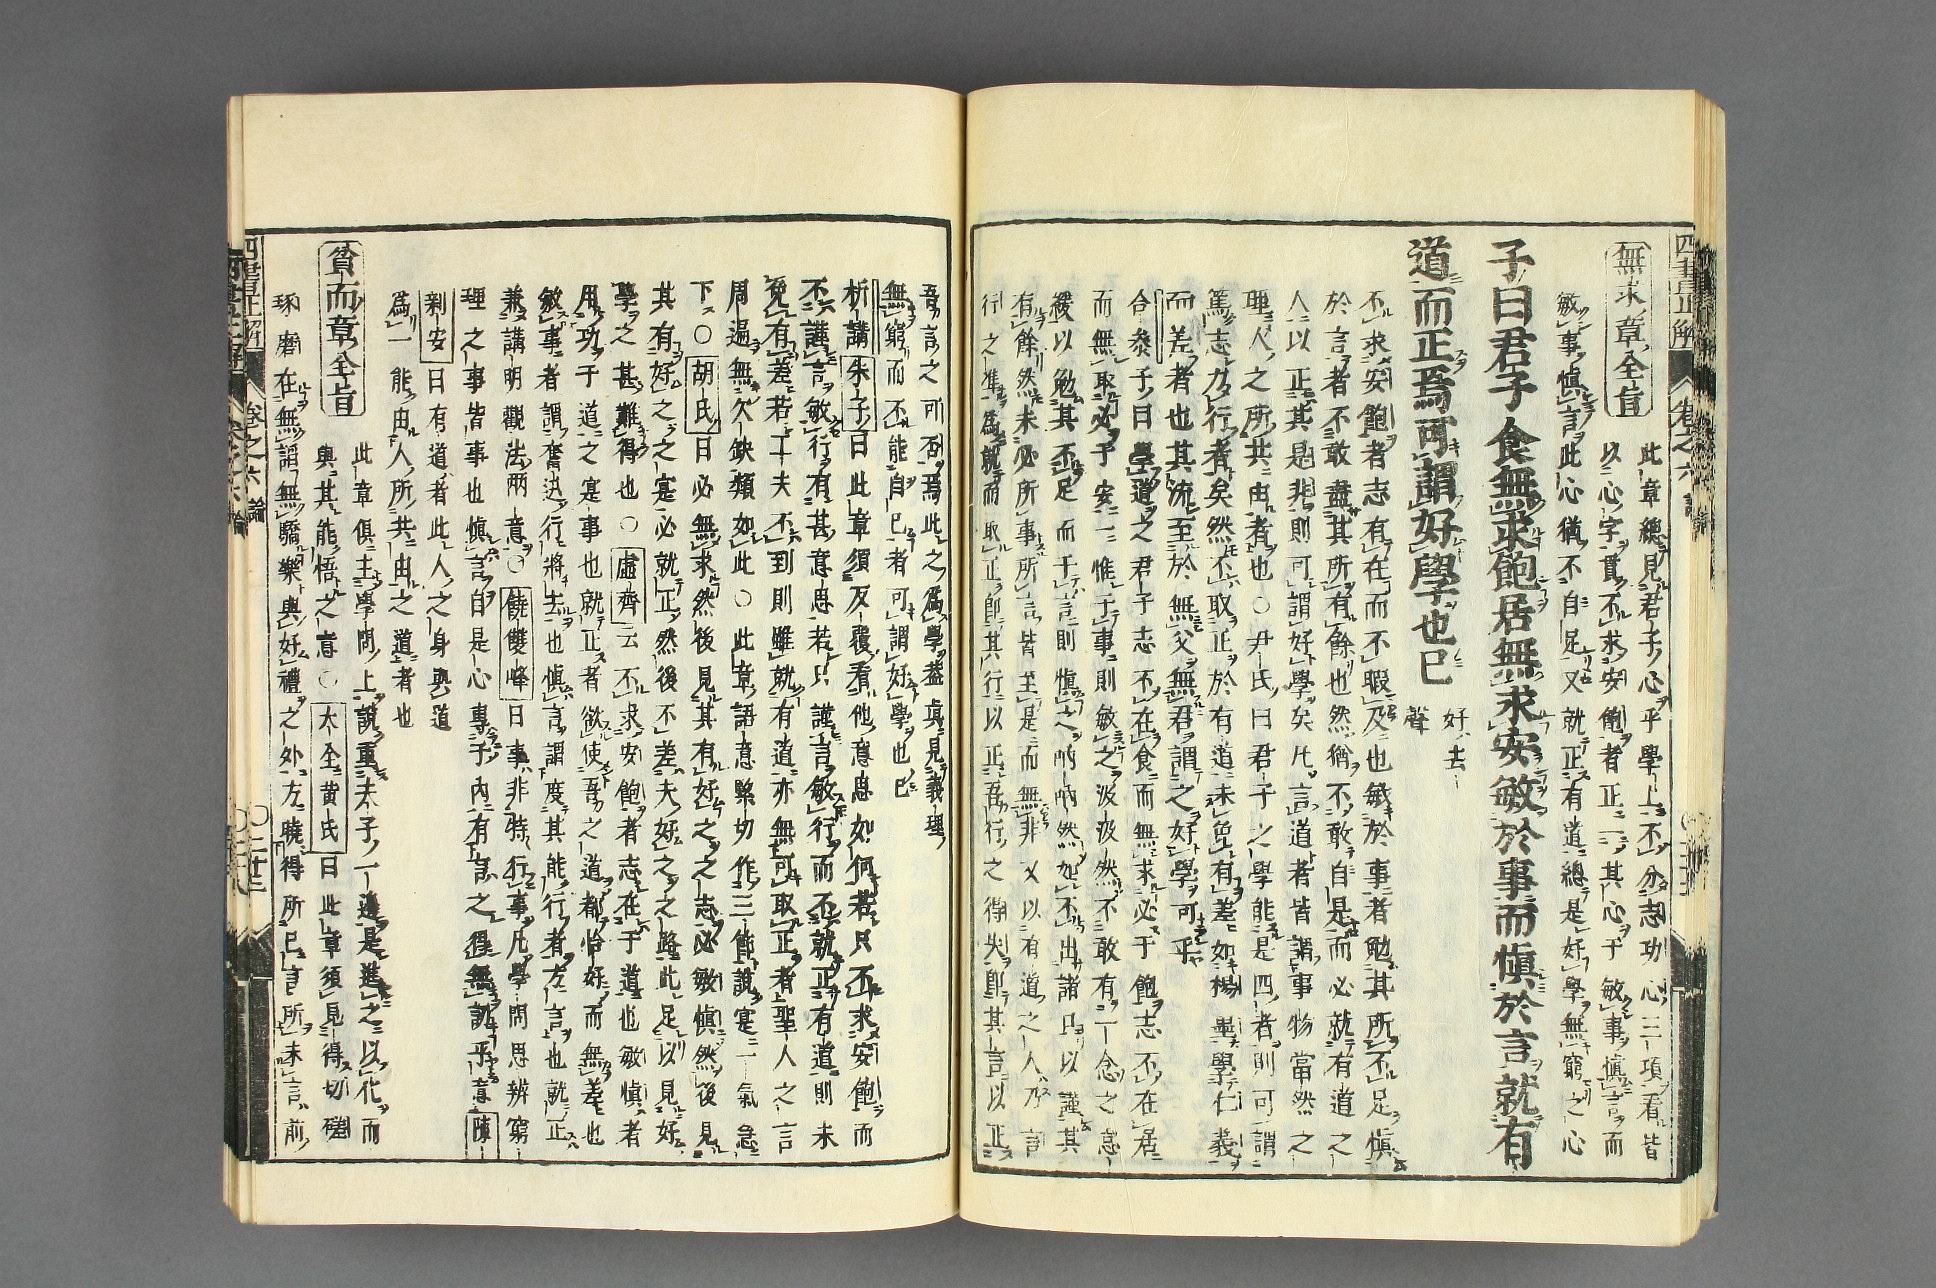 四書正解 卷之六 論
無求章全旨
此章總見君子心乎學上不分志功心三項看皆
以心字貫不求安飽者正其心于敏事慎言而
敏事慎言此心猶不自足又就正有道總是好學無窮之心
子曰君子食無求飽居無求安敏於事而慎於言就有
道而正焉可謂好學也已
好去
聲
不求安飽者志有在而不暇及也敏於事者勉其所不足慎
於言者不敢盡其所有餘也然猶不敢自是而必就有道之
人以正其是非則可謂好學矣凡言道者皆謂事物當然之
理人之所共由者也○尹氏曰君子之學能是四者則可謂
篤志力行者矣然不取正於有道未免有差如楊墨學仁義
而差者也其流至於無父無君謂之好學可乎
合參子曰學道之君子志不在食而無求必于飽志不在居
而無取必于安一惟于事則敏之汲汲然不敢有一念之怠
緩以勉其不足而于言則慎之訥訥然如不出諸口以謹其
有餘然未必所事所言皆至是而無非又以有道之人乃言
行之準爲就而取正卽其行以正吾行之得失卽其言以正
吾言之可否焉此之爲學益真見義理
無窮而不能自已者可謂好學也已
析講朱子曰此章須反覆看他意思如何若只不求安飽而
不謹言敏行有甚意思若只謹言敏行而不就正有道則未
免有差若工夫不到則雖就有道亦無可取正者聖人之言
周遍無欠缺類如此○此章語意緊切作三節說寔一氣急
下○胡氏曰必無求然後見其有好之之志必敏慎然後見
其有好之之寔必就正然後不差夫好之之路此足以見好
學之甚難得也○虛齊云不求安飽者志在于道也敏慎者
用功于道之寔事也就正者欲使吾之道都恰好而無差也
敏事者謂奮決行將去也慎言謂度其能行者方言也就正
兼講明觀法兩意○饒雙峰曰事非特行事凡學問思辨窮
理之事皆事也慎言自是心專于內有言之得無訒乎意陳
剩安曰有道者此人之身與道
爲一能由人所共由之道者也
貧而章全旨
此章俱主學問上說重夫子一邊是進之以化而
與其能悟之意○大全黃氏曰此章須見得切磋
琢磨在無諂無驕樂與好禮之外方曉得所已言所未言前
四書正解 卷之六 論 ○二廿三